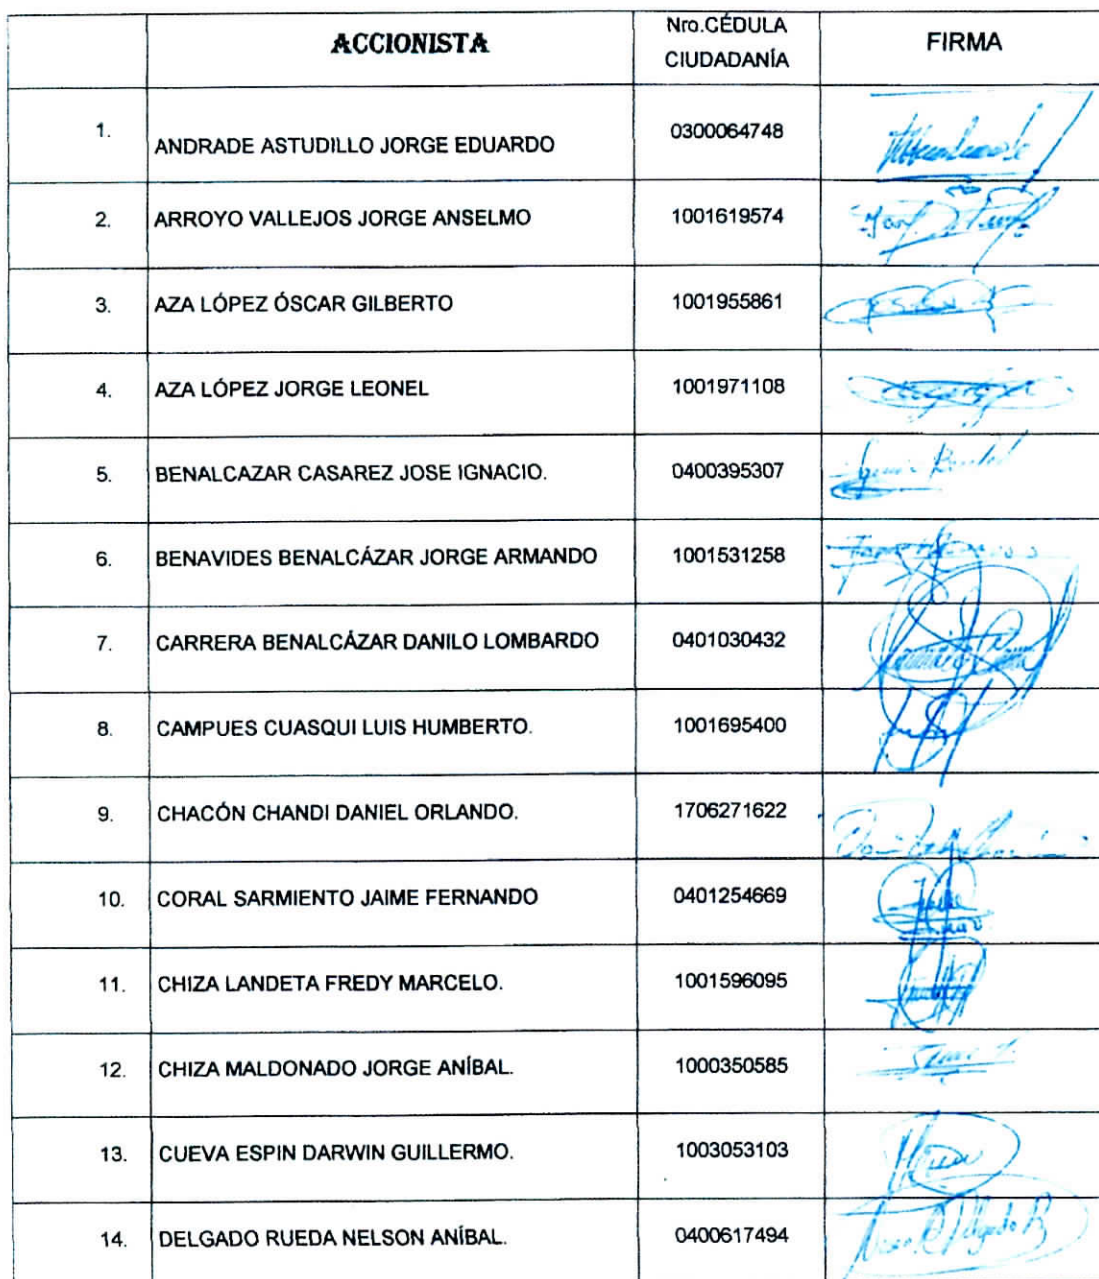 ACCIONISTA
Nro.CÉDULA
CIUDADANÍA
FIRMA
1. ANDRADE ASTUDILLO JORGE EDUARDO 0300064748
2. ARROYO VALLEJOS JORGE ANSELMO 1001619574
3. AZA LÓPEZ ÓSCAR GILBERTO 1001955861
4. AZA LÓPEZ JORGE LEONEL 1001971108
5. BENALCAZAR CASAREZ JOSE IGNACIO. 0400395307
6. BENAVIDES BENALCÁZAR JORGE ARMANDO 1001531258
7. CARRERA BENALCÁZAR DANILO LOMBARDO 0401030432
8. CAMPUES CUASQUI LUIS HUMBERTO. 1001695400
9. CHACÓN CHANDI DANIEL ORLANDO. 1706271622
10. CORAL SARMIENTO JAIME FERNANDO 0401254669
11. CHIZA LANDETA FREDY MARCELO. 1001596095
12. CHIZA MALDONADO JORGE ANÍBAL. 1000350585
13. CUEVA ESPIN DARWIN GUILLERMO. 1003053103
14. DELGADO RUEDA NELSON ANÍBAL. 0400617494